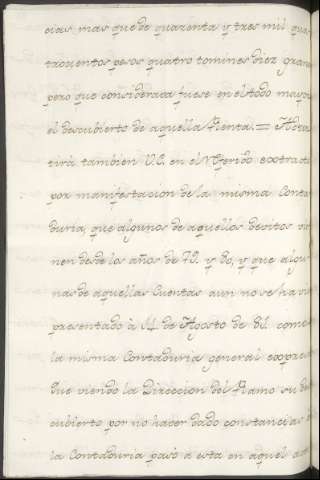 cias, mas que de quarenta y tres mil qua
trocientos pesos quatro tomines diez granos
pero que consideraba fuese en el todo mayor
el descubierto de aquella Renta = Adver
tirá tambien V.E. en el referido extracto
por manifestacion de la misma Conta
duria, que algunos de aquellos devitos vie
nen desde los años de 79. y 80, y que algu
nas de aquellas Cuentas aun no se havian
presentado à 14 de Agosto de 81. como
la misma Contaduria general expresa
Que viendo la Direccion del Ramo su des
cubierto por no haver dado constancias
la Contaduria pasó a esta en aquel